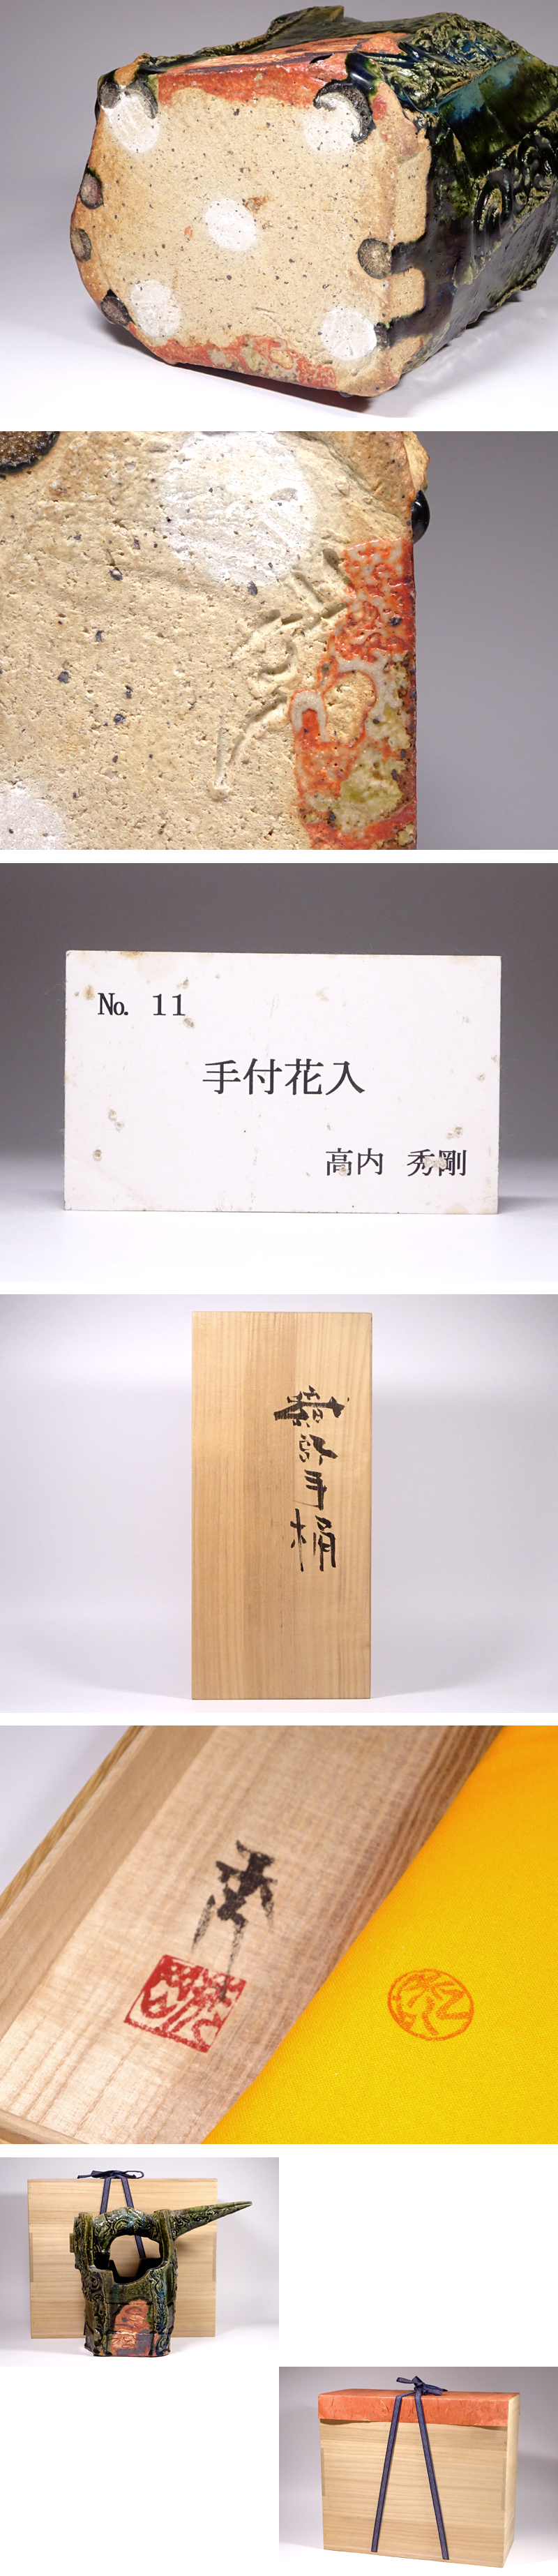 No. 11
手付花入
高内 秀剛
手桶
秀